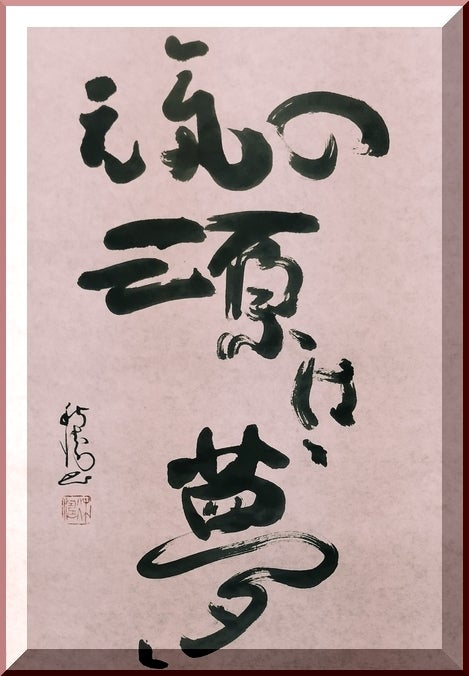 元氣の
源
は
夢